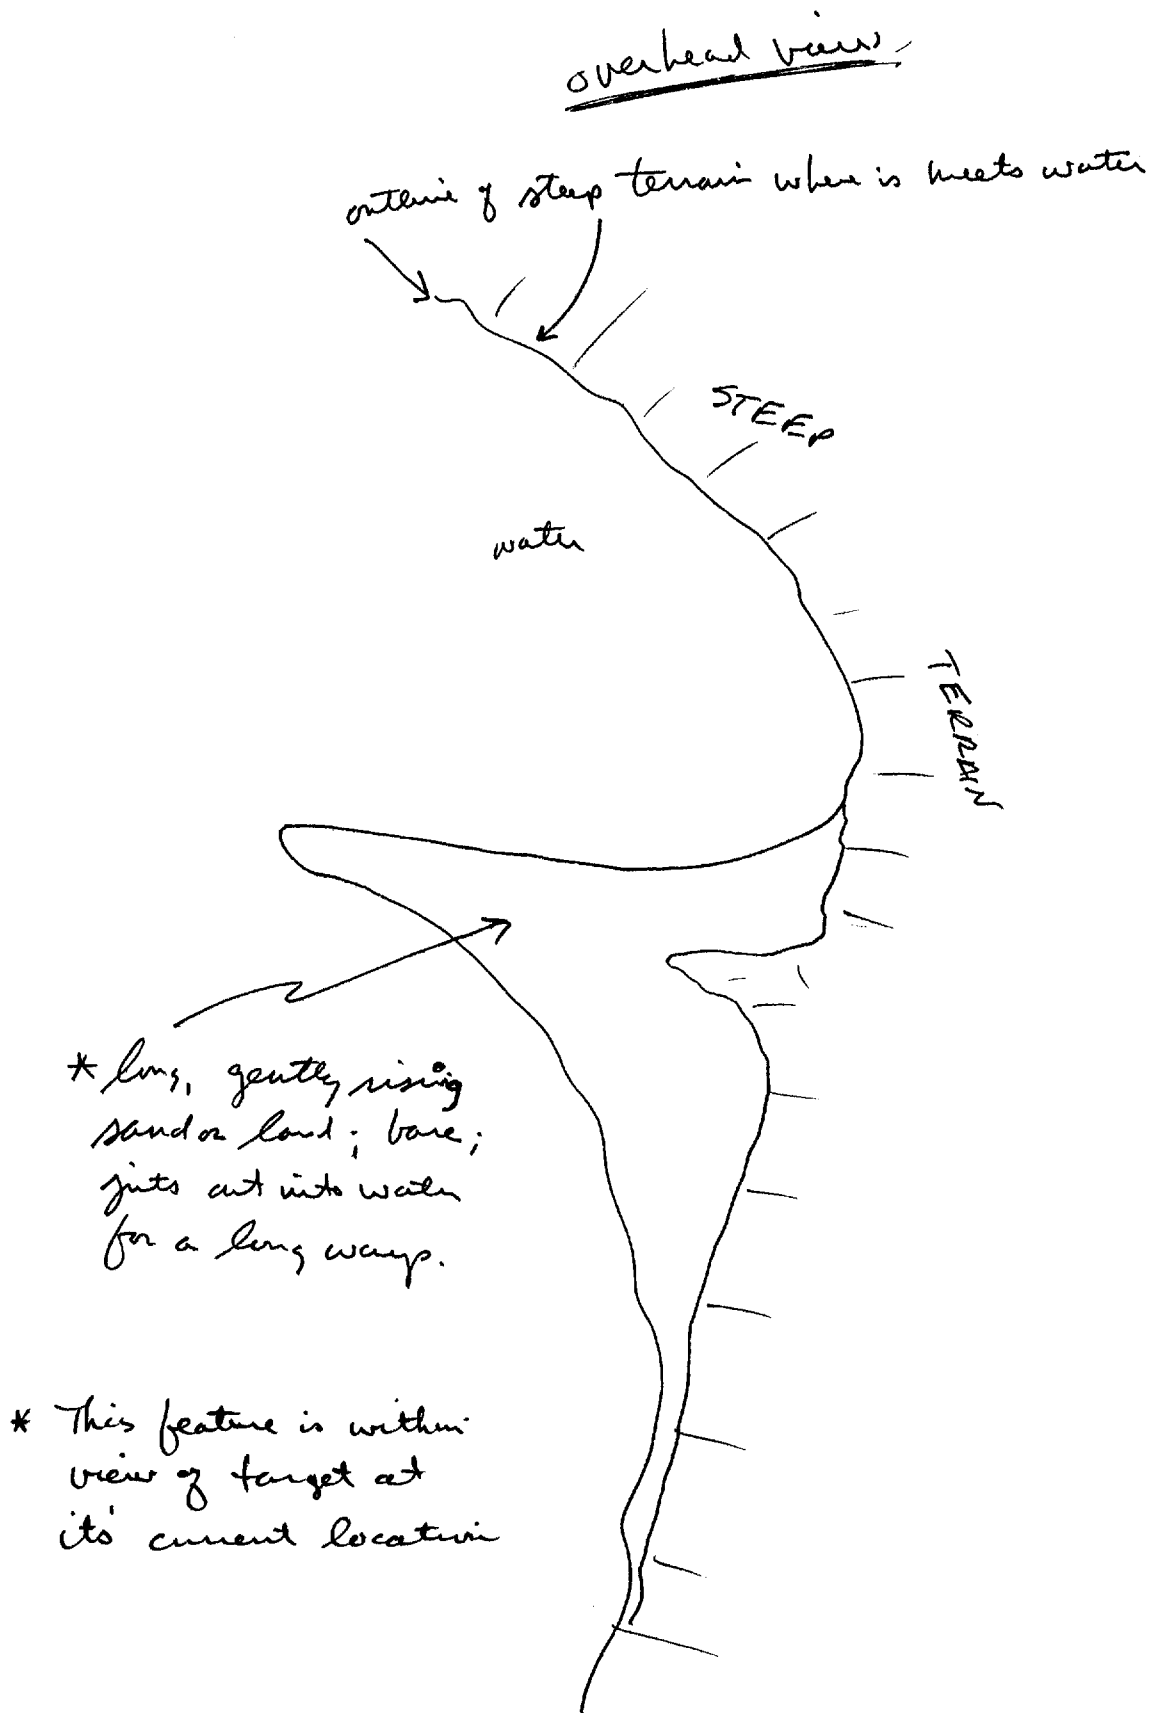 overhead view
outline of steep terrain where is meets water
STEEP
water
TERRAIN
* long, gently rising
sand or land; bare;
juts out into water
for a long ways.
* This feature is within
view of target at
its' current location